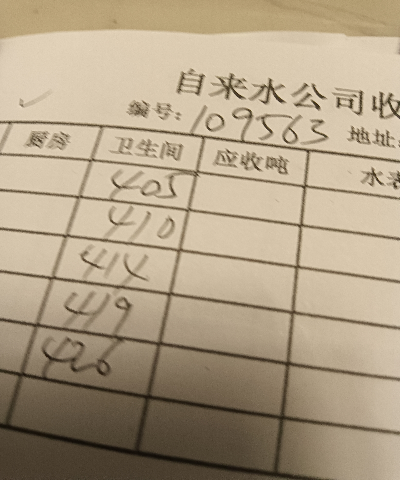 自来水公司收
编号: 109563 地址:
厨房 卫生间 应收吨 水表
405
410
414
419
426